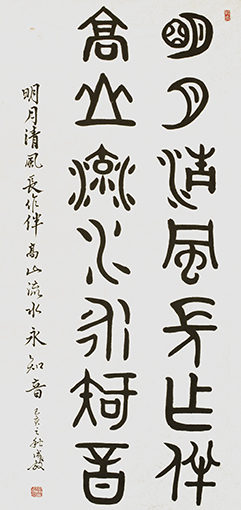 明月清風長作伴
高山流水永知音
明月清風長作伴 高山流水永知音 己亥之秋